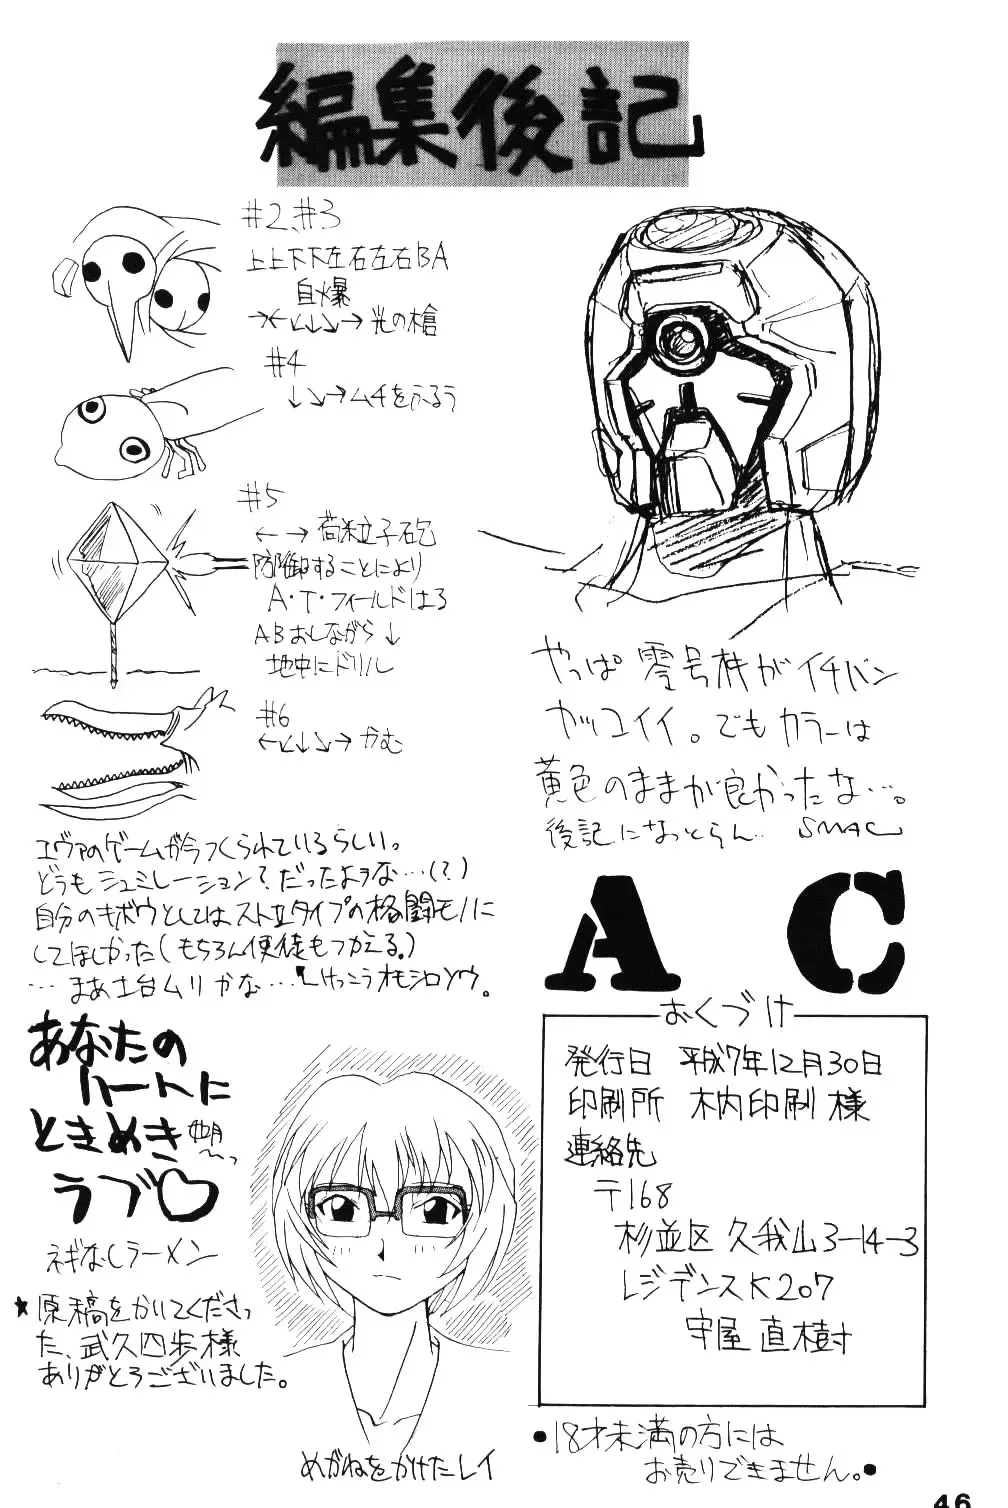 編集後記
#2、#3
上上下下左右左右BA
自爆
→←↙↓↘→光の槍
#4
↓↘→ムチをふるう
#5
←→荷粒子砲
防御することにより
A・T・フィールドはる
ABおしながら↓
地中にドリル
#6
←↙↓↘→かむ
エヴァのゲームが今つくられているらしい。
どうもシュミレーション?だったよヲな…(?)
自分のキボウとしてはストⅡタイプの格闘モノに
してほしかった(もちろん使徒もつかえる。)
…まあ土台ムリかな…けっこうオモシロソウ。
やっぱ零号機がイチバン
カッコイイ。でもカラーは
黄色のままが良かったな…。
後記になっとらん… SMAC
A C
あなたの
ハートに
ときめき
ラブ♡
ネギなしラーメン
★原稿をかいてくださっ
た、武久四歩様
ありがとうございました。
めがねをかけたレイ
おくづけ
発行日 平成7年12月30日
印刷所 木内印刷様
連絡先
〒168
杉並区久我山3-14-3
レジデンスK207
守屋直樹
●18才未満の方には
お売りできません。●
46